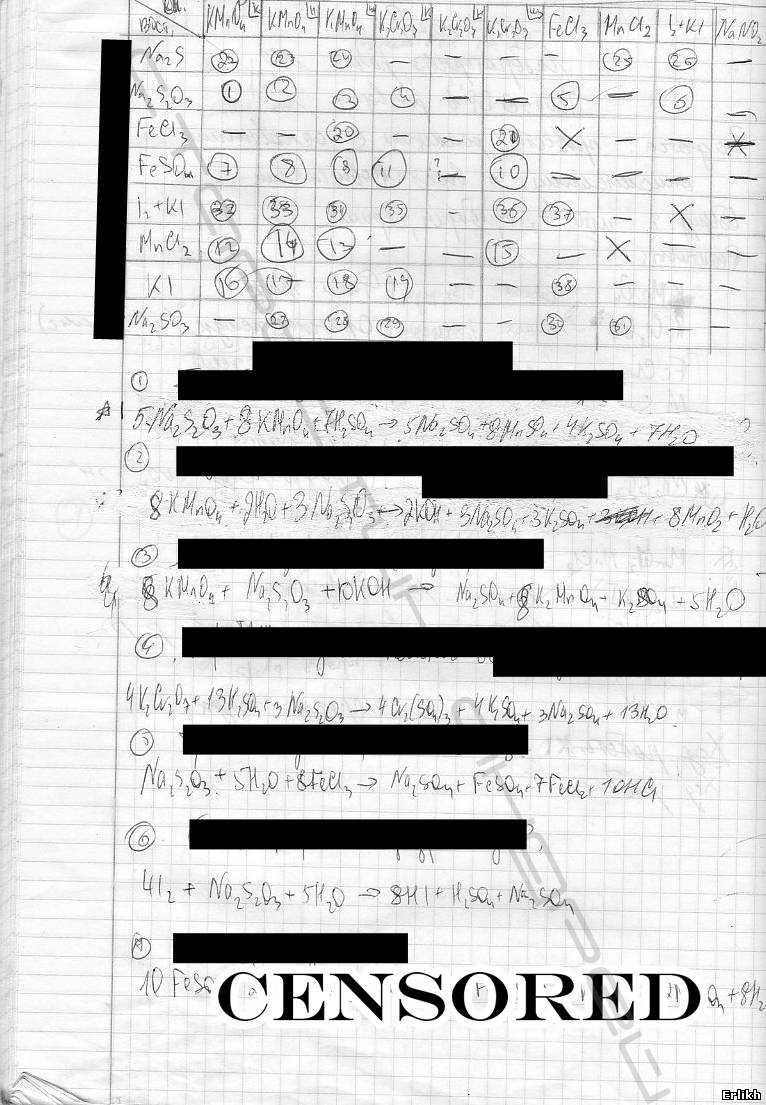 Вост. KMnO4 KMnO4 KMnO4 K2Cr2O7 K2Cr2O7 K2Cr2O7 FeCl3 MnCl2 I2+KI NaNO2
Na2S 22 23 24 — — — — 25 26 —
Na2S2O3 1 12 13 4 — — 5 — 6 —
FeCl3 — — 20 — — 21 X — — X
FeSO4 7 8 8 11 ? — 10 — — — —
I2+KI 32 33 31 35 — 36 37 — X —
MnCl2 12 14 13 — — 15 — X — —
KI 16 17 18 19 — — 38 — — —
Na2SO3 — 27 28 29 — — 30 31 — —
1
5Na2S2O3 + 8KMnO4 + 7H2SO4 → 5Na2SO4 + 8MnSO4 + 4K2SO4 + 7H2O
2
8KMnO4 + 2H2O + 3Na2S2O3 → 2KOH + 3Na2SO4 + 3K2SO4 + 8MnO2 + H2O
3
8KMnO4 + Na2S2O3 + 10KOH → Na2SO4 + 8K2MnO4 + K2SO4 + 5H2O
4
4K2Cr2O7 + 13H2SO4 + 3Na2S2O3 → 4Cr2(SO4)3 + 4K2SO4 + 3Na2SO4 + 13H2O
5
Na2S2O3 + 5H2O + 8FeCl3 → Na2SO4 + FeSO4 + 7FeCl2 + 10HCl
6
4I2 + Na2S2O3 + 5H2O → 8HI + H2SO4 + Na2SO4
10 FeSO
CENSORED
O4 + 8H2
Erlikh